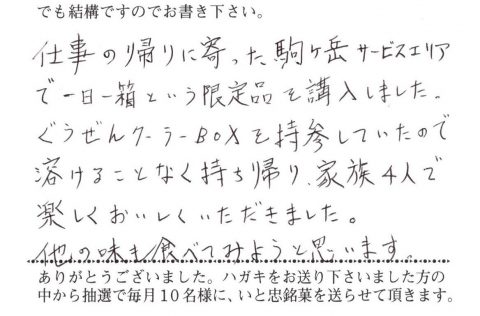 でも結構ですのでお書き下さい。
仕事の帰りに寄った駒ヶ岳サービスエリア
で一日一箱という限定品を講入しました。
ぐうぜんクーラーBOXを持参していたので
溶けることなく持ち帰り、家族4人で
楽しくおいしくいただきました。
他の味も食べてみようと思います。
ありがとうございました。ハガキをお送り下さいました方の
中から抽選で毎月10名様に、いと忠銘菓を送らせて頂きます。